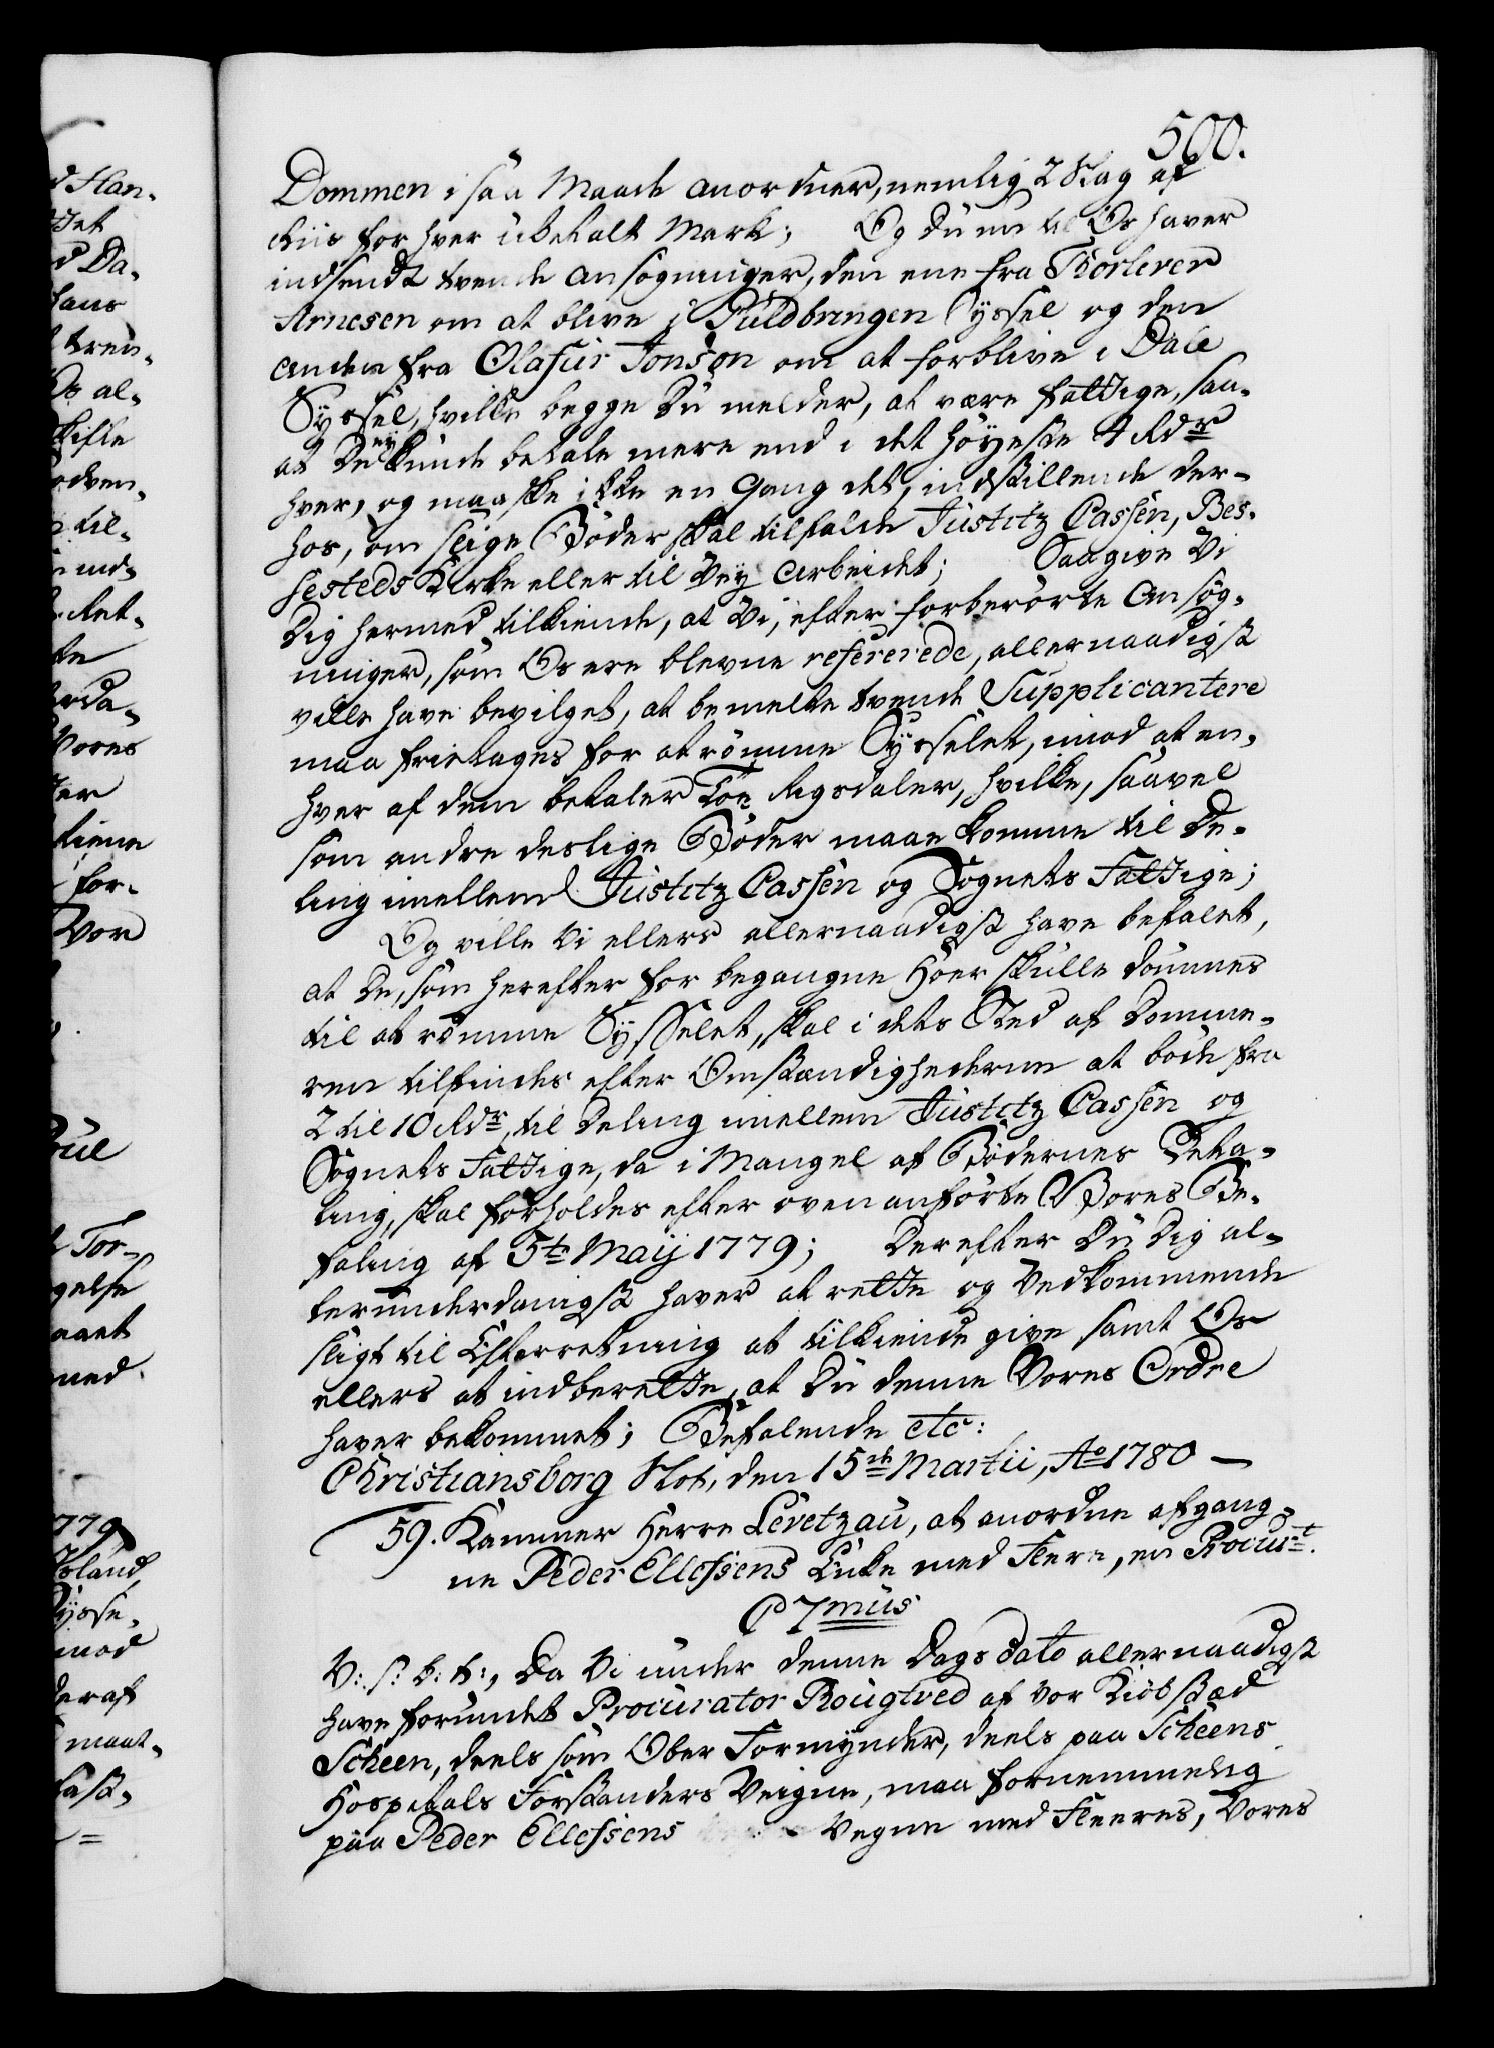 500.
Dommen i saa Maade anordner, nemlig 2 Slag af
Riis for hver ubetalt Mark; Og Du nu til Os haver
indsendt tvende Ansøgninger, den ene fra Thorlever
Arnesen om at blive i Guldbringen Syssel og den
anden fra Olafur Jonson om at forblive i Dale
Syssel, hvilke begge Du melder, at være fattige, saa-
at De ey kunde betale mere end i det høyeste 4 Rdr
hver, og maaskee ikke en Gang det, indstillende der-
hos, om slige Bøder skal tilfalde Justitz Cassen, Bes-
sesteds Kirke eller til Vey Arbeidet; Saa give Vi
Dig hermed tilkiende, at Vi, efter forberørte Ansøg-
ninger, som Os ere blevne refererede, allernaadigst
ville have bevilget, at bemelte tvende Supplicantere
maa fritages for at rømme Sysselet, imod at en-
hver af dem betaler Toe Rigsdaler, hvilke, saavel
som andre deslige Bøder maae komme til De-
ling imellem Justitz Cassen og Sognets Fattige;
Og ville Vi ellers allernaadigst have befalet,
at De, som herefter for begangne Hoer skulle dømmes
til at rømme Sysselet, skal i dets Sted af Domme-
ren tilfindes efter Omstændighederne at bøde fra
2 til 10 Rdr, til Deling imellem Justitz Cassen og
Sognets Fattige, da i Mangel af Bødernes Beta-
ling, skal forholdes efter ovenanførte Vores Be-
faling af 5te Maij 1779; Derefter Du Dig al-
lerunderdanigst haver at rette og Vedkommende
sligt til Efterretning at tilkiende give samt Os
ellers at indberette, at Du denne Vores Ordre
haver bekommet; Befalende etc:
Christiansborg Slot, den 15de Martii, Ao 1780 —
59. Kammer Herre Levetzau, at anordne afgang-
ne Peder Ellefsens Enke med Fleere, en Procurt.
C 7mus
V: S: B: T:, Da Vi under denne Dags dato allernaadigst
have forundet Procurator Rougtved af vor Kiøbstæd
Scheen, deels som Ober Formynder, deels paa Scheens
Hospitals Forstanders Veigne, maa fornemmelig
paa Peder Ellefsens Vegne med Fleeres, Vores